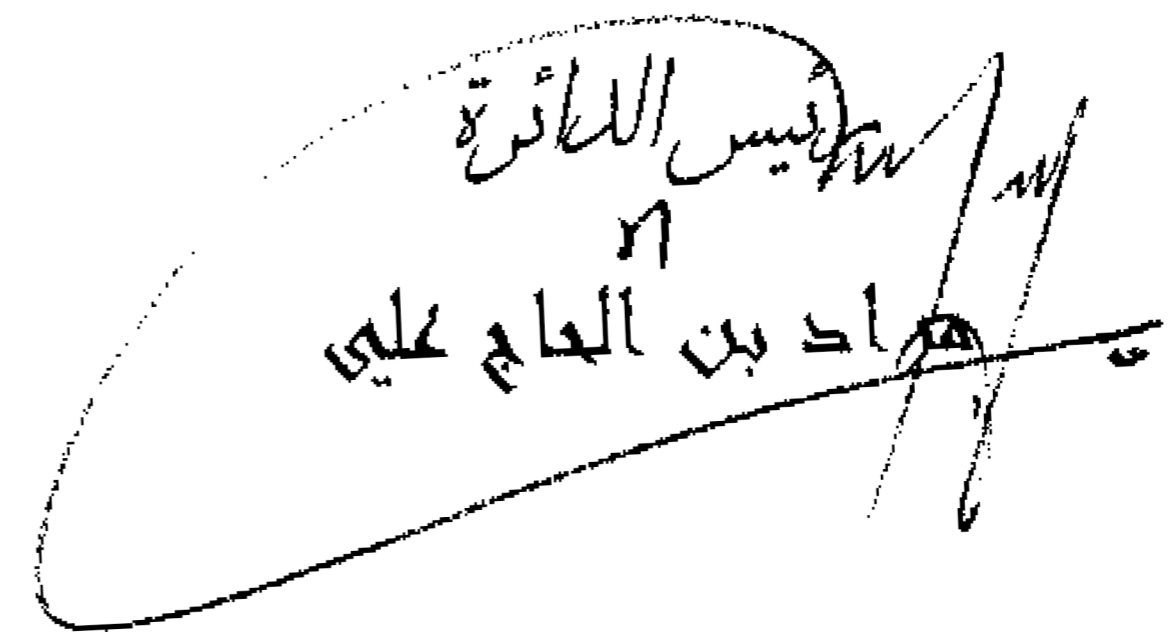 رئيس الدائرة
مراد بن الحاج علي